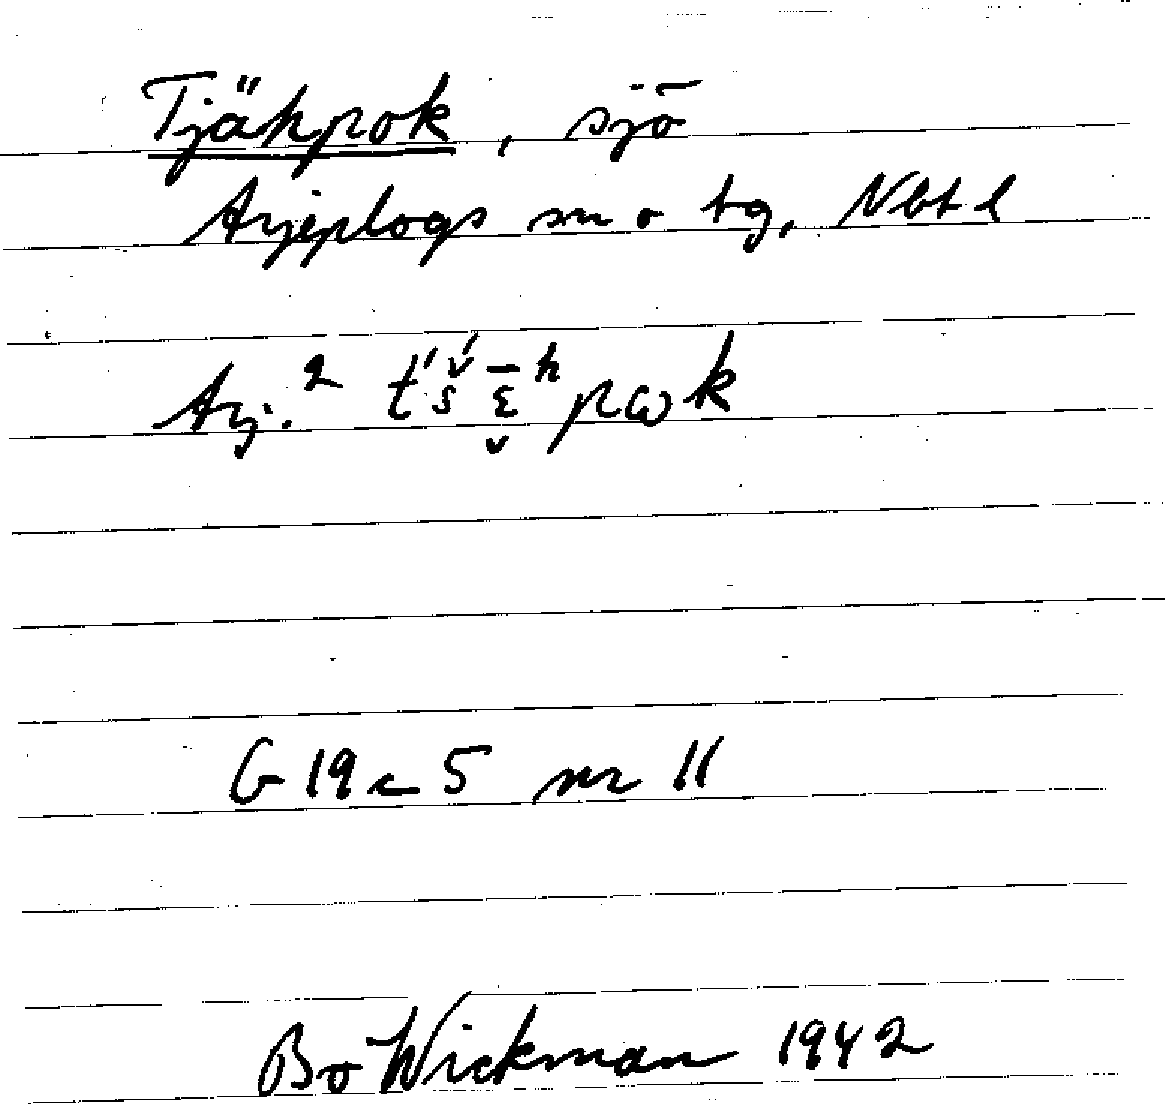 Tjähpok, sjö
Arjeplogs sn o tg, Nbt l
Arj.² t́š́ɛ̬̄ʰpωk
G 19 c 5 nr 11
Bo Wickman 1942